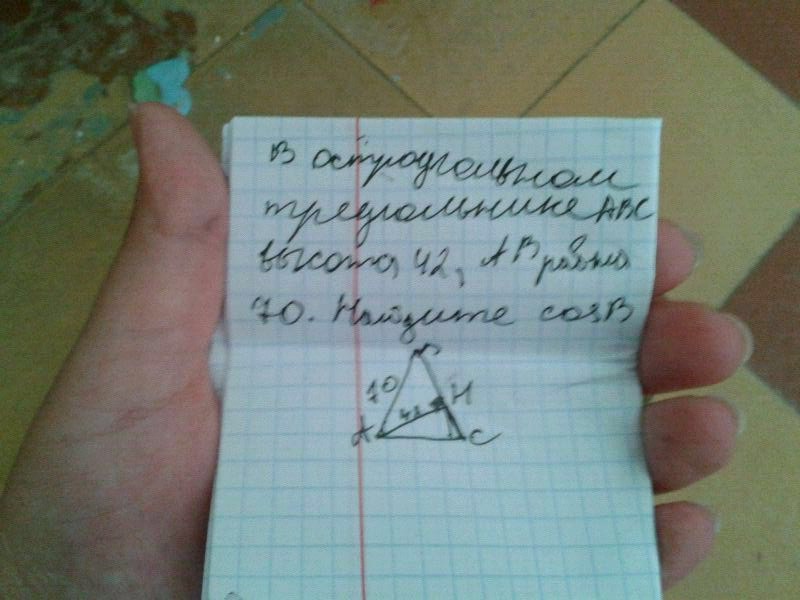 В остроугольном
треугольнике ABC
высота 42, AB равна
70. Найдите cosB
B
70
H
42
A
C